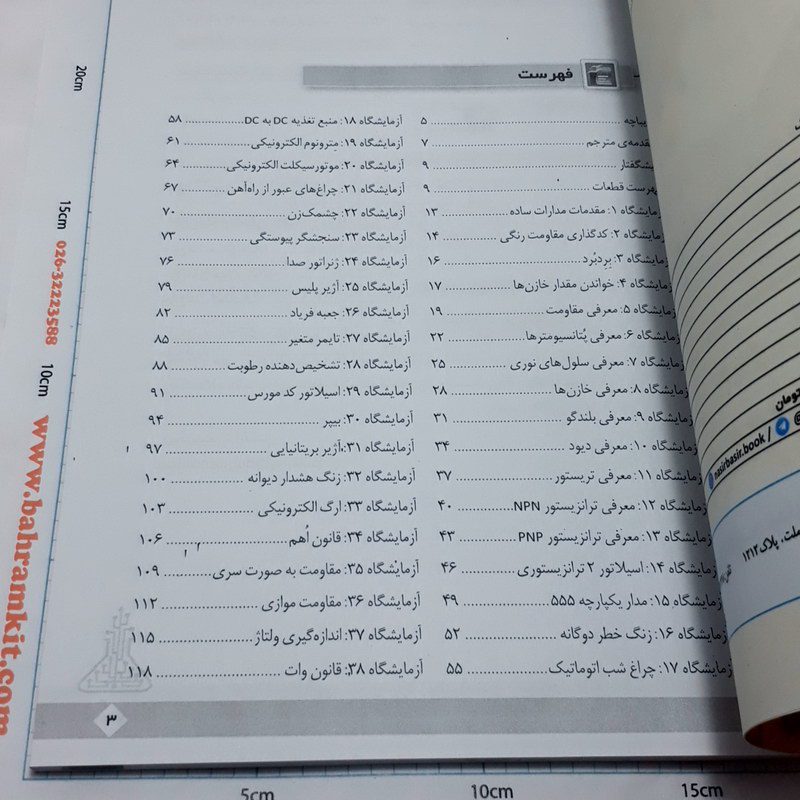 فهرست
یباچه ........ ۵
قدمه‌ی مترجم ........ ۷
شگفتار ........ ۹
هرست قطعات ........ ۹
زمایشگاه ۱: مقدمات مدارات ساده ........ ۱۳
زمایشگاه ۲: کدگذاری مقاومت رنگی ........ ۱۴
زمایشگاه ۳: بردبُرد ........ ۱۶
زمایشگاه ۴: خواندن مقدار خازن‌ها ........ ۱۷
زمایشگاه ۵: معرفی مقاومت ........ ۱۹
زمایشگاه ۶: معرفی پُتانسیومترها ........ ۲۲
زمایشگاه ۷: معرفی سلول‌های نوری ........ ۲۵
زمایشگاه ۸: معرفی خازن‌ها ........ ۲۸
زمایشگاه ۹: معرفی بلندگو ........ ۳۱
زمایشگاه ۱۰: معرفی دیود ........ ۳۴
زمایشگاه ۱۱: معرفی تریستور ........ ۳۷
زمایشگاه ۱۲: معرفی ترانزیستور NPN ........ ۴۰
زمایشگاه ۱۳: معرفی ترانزیستور PNP ........ ۴۳
زمایشگاه ۱۴: اسیلاتور ۲ ترانزیستوری ........ ۴۶
زمایشگاه ۱۵: مدار یکپارچه ۵۵۵ ........ ۴۹
زمایشگاه ۱۶: زنگ خطر دوگانه ........ ۵۲
زمایشگاه ۱۷: چراغ شب اتوماتیک ........ ۵۵
آزمایشگاه ۱۸: منبع تغذیه DC به DC ........ ۵۸
آزمایشگاه ۱۹: مترونوم الکترونیکی ........ ۶۱
آزمایشگاه ۲۰: موتورسیکلت الکترونیکی ........ ۶۴
آزمایشگاه ۲۱: چراغ‌های عبور از راه‌آهن ........ ۶۷
آزمایشگاه ۲۲: چشمک‌زن ........ ۷۰
آزمایشگاه ۲۳: سنجشگر پیوستگی ........ ۷۳
آزمایشگاه ۲۴: ژنراتور صدا ........ ۷۶
آزمایشگاه ۲۵: آژیر پلیس ........ ۷۹
آزمایشگاه ۲۶: جعبه فریاد ........ ۸۲
آزمایشگاه ۲۷: تایمر متغیر ........ ۸۵
آزمایشگاه ۲۸: تشخیص‌دهنده رطوبت ........ ۸۸
آزمایشگاه ۲۹: اسیلاتور کد مورس ........ ۹۱
آزمایشگاه ۳۰: بیپر ........ ۹۴
آزمایشگاه ۳۱: آژیر بریتانیایی ........ ۹۷
آزمایشگاه ۳۲: زنگ هشدار دیوانه ........ ۱۰۰
آزمایشگاه ۳۳: ارگ الکترونیکی ........ ۱۰۳
آزمایشگاه ۳۴: قانون اُهم ........ ۱۰۶
آزمایشگاه ۳۵: مقاومت به صورت سری ........ ۱۰۹
آزمایشگاه ۳۶: مقاومت موازی ........ ۱۱۲
آزمایشگاه ۳۷: اندازه‌گیری ولتاژ ........ ۱۱۵
آزمایشگاه ۳۸: قانون وات ........ ۱۱۸
۳
تومان
nasirbasir.book /
ملت، پلاک ۱۲۱۲
20cm
15cm
026-32223588
10cm
www.bahramkit.com
5cm
10cm
15cm